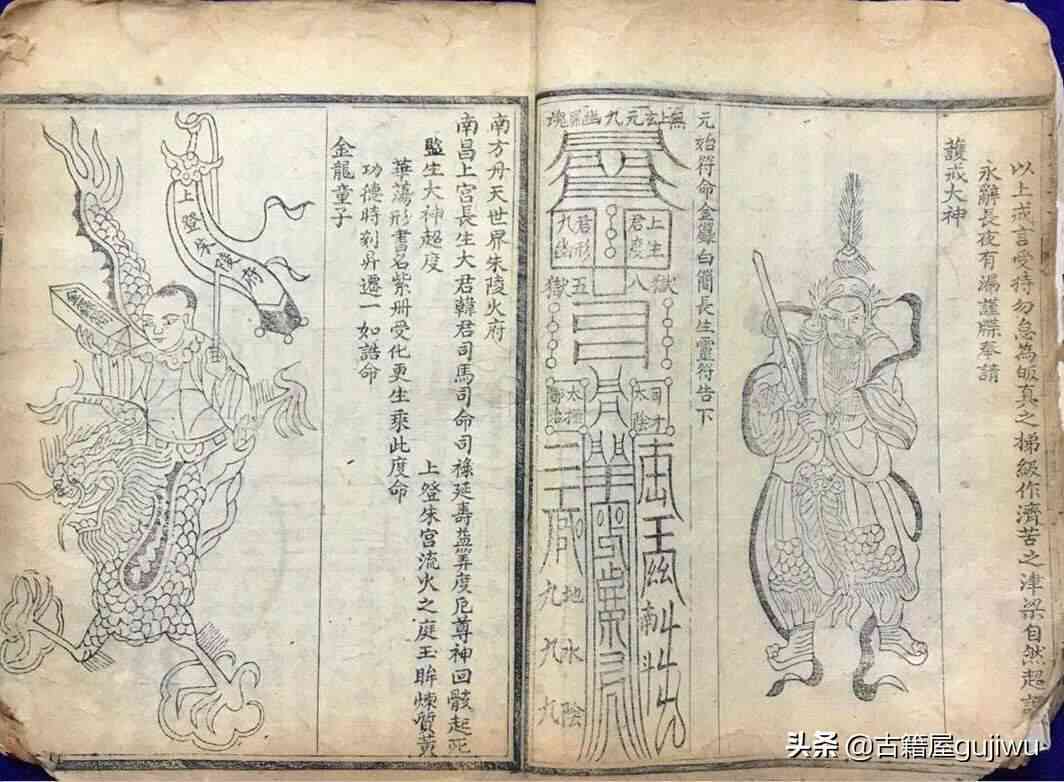 以上戒言受持勿怠為皈真之梯級作濟苦之津梁自然超
永辭長夜有漏謹牒奉請
護戒大神
元始符命金籙白簡長生靈符告下
無上玄元九幽魂
上生
君度
君形
九幽
獄八
五獄
太陰
太極
南斗
地水陰
九九九
南方丹天世界朱陵火府
南昌上宮長生大君韓君司馬司命司祿延壽益筭度厄尊神回骸起死
監生大神超度
上登朱宮流火之庭玉眸煉質黃
華蕩形書名紫册受化更生乘此度命
功德時刻昇遷一如誥命
金龍童子
上登朱陵府
头条 @古籍屋gujiwu